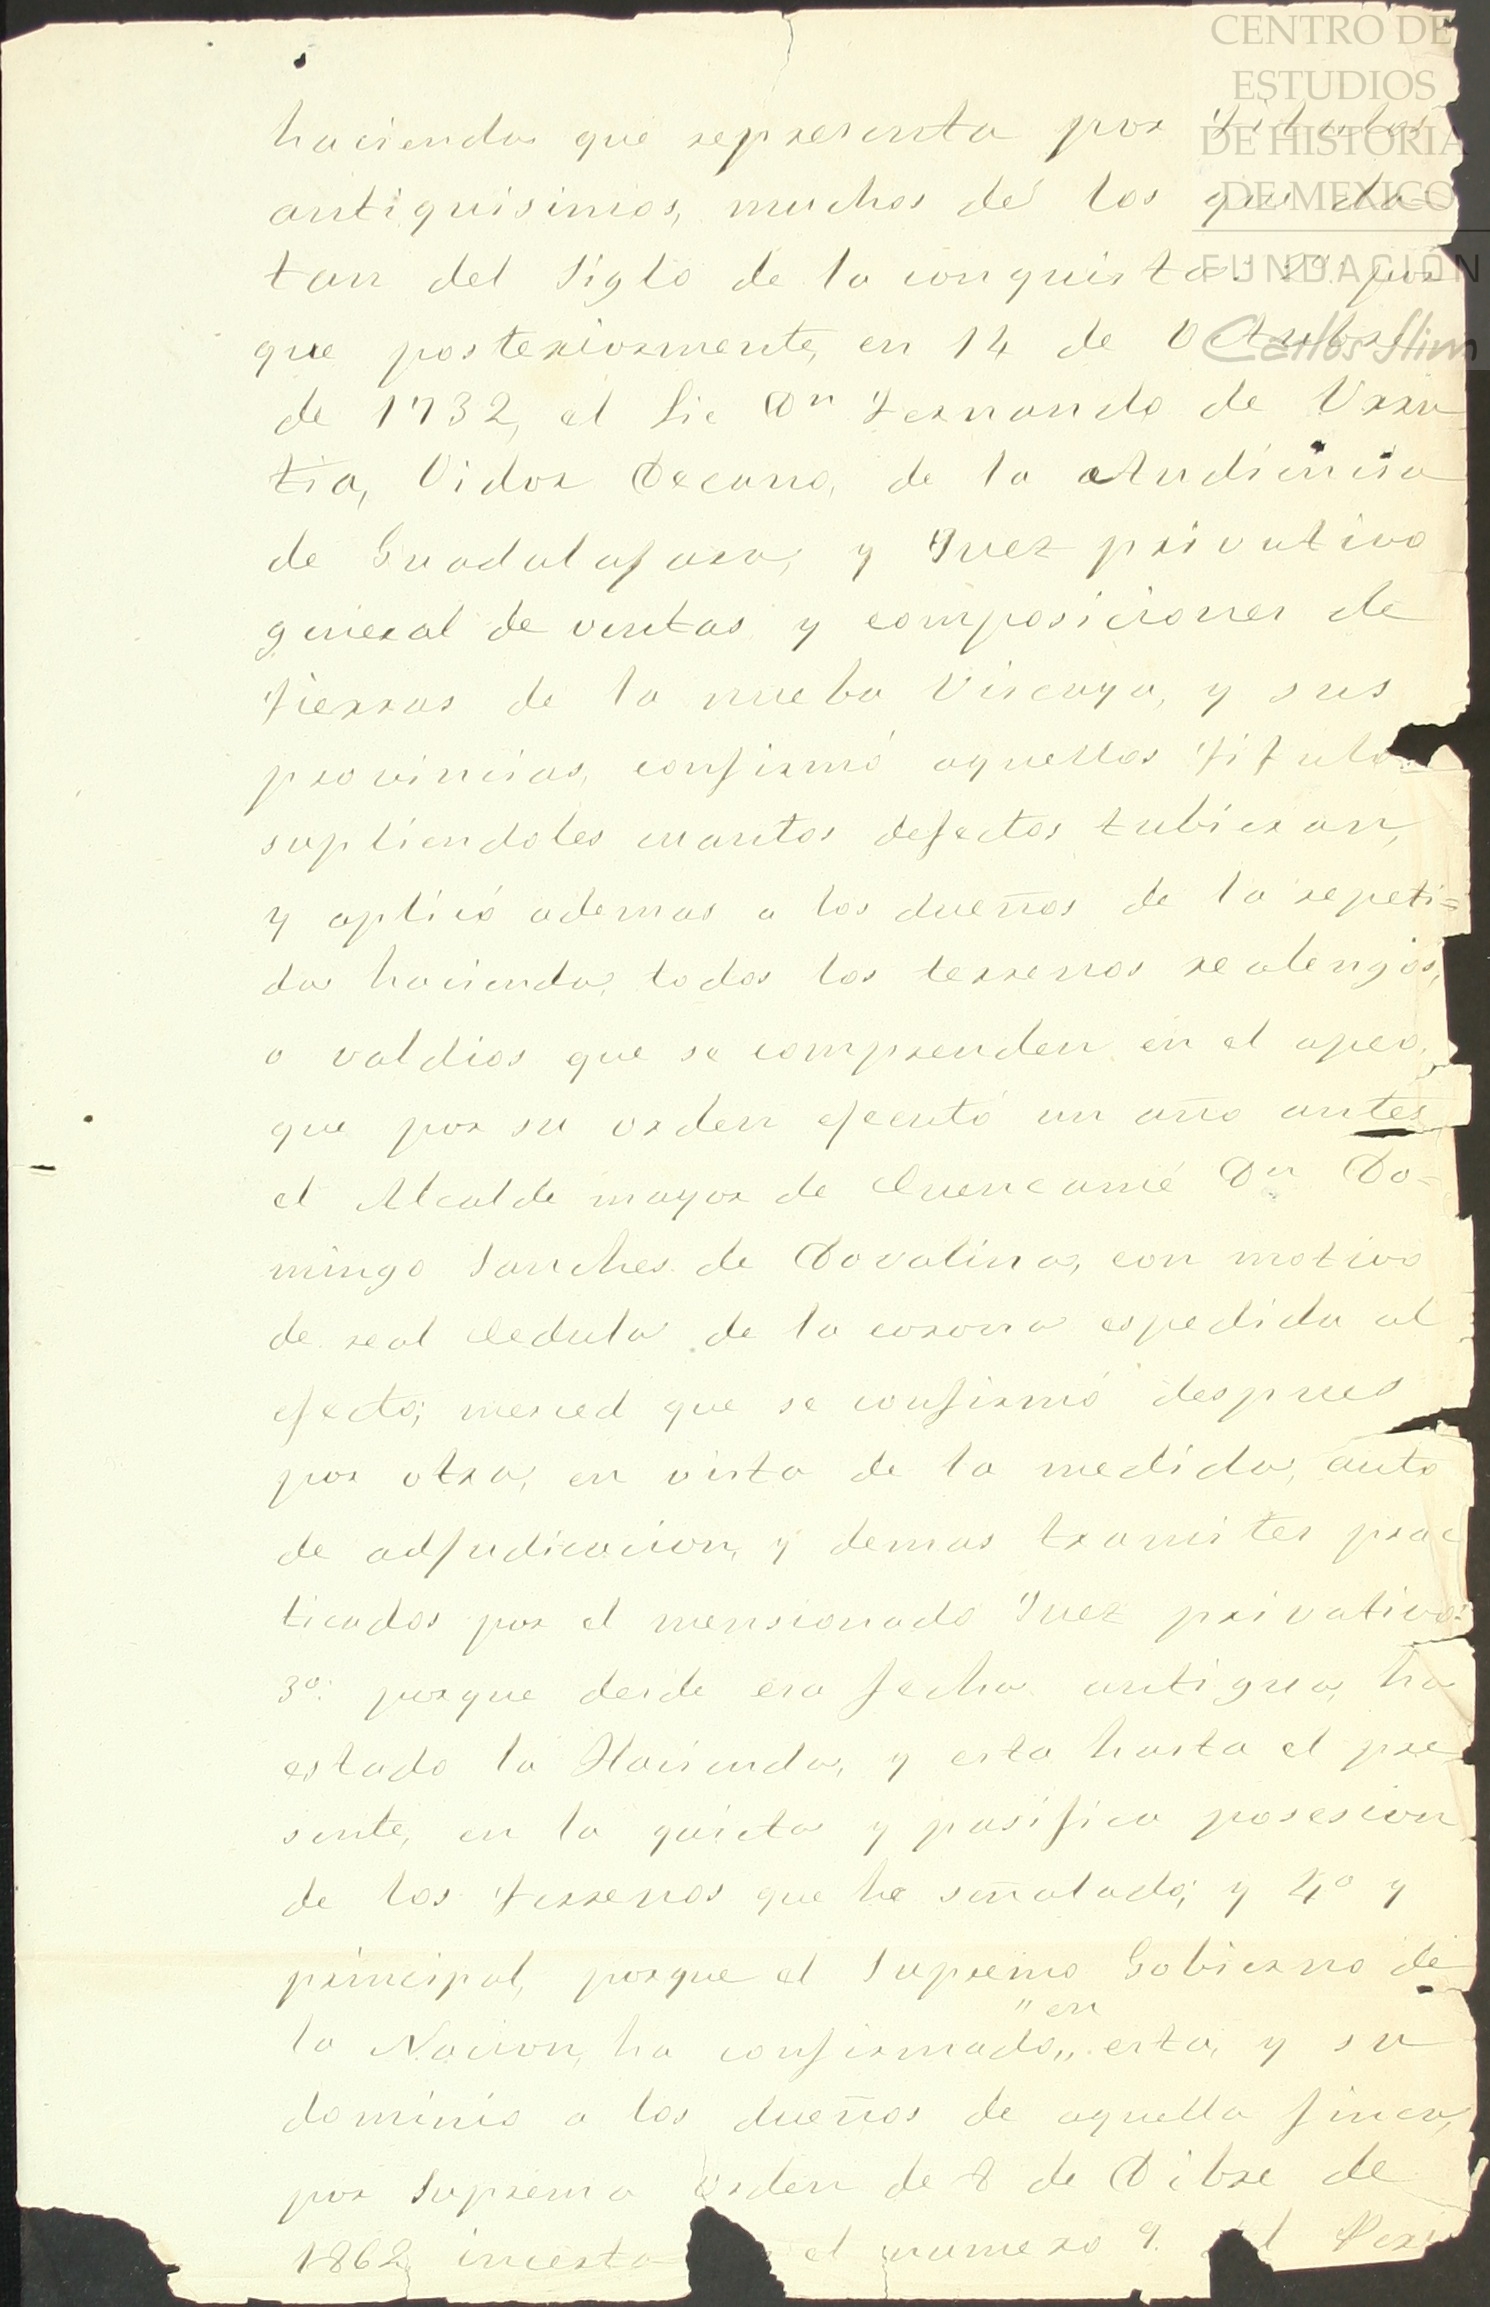 CENTRO DE
ESTUDIOS
DE HISTORIA
DE MEXICO
FUNDACIÓN
Carlos Slim
hacienda que representa por titulos
antiquisimos, muchos de los que da-
tan del siglo de la conquista: 2º: por
que posteriormente, en 14 de Octubre
de 1732, el Lic Dn Fernando de Urru
tia, Oidor Decano, de la Audiencia
de Guadalajara, y Juez privativo
general de ventas y composiciones de
tierras de la nueba Viscaya, y sus
provincias, confirmó aquellos titulo
supliendoles cuantos defectos tubieran,
y aplicó ademas a los dueños de la repeti=
da hacienda, todos los terrenos realengos,
o valdios que se comprenden en el apeo,
que por su orden ejecutó un año antes
el Alcalde mayor de Cuencamé Dn Do-
mingo Sanches de Dovalina, con motivo
de real cedula de la corona espedida al
efecto; merced que se confirmó despues
por otra, en vista de la medida, auto
de adjudicacion, y demas tramites prac
ticados por el mensionado Juez privativo:
3º: porque desde esa fecha antigua, ha
estado la Hacienda, y esta hasta el pre
sente, en la quieta y pasifica posesion
de los terrenos que he señalado; y 4º y
principal, porque el Supremo Gobierno de
"en
la Nacion, ha confirmado,, esta, y su
dominio a los dueños de aquella finca,
por Suprema orden de 8 de Dibre de
1862 incerta el numero 9. del Peri